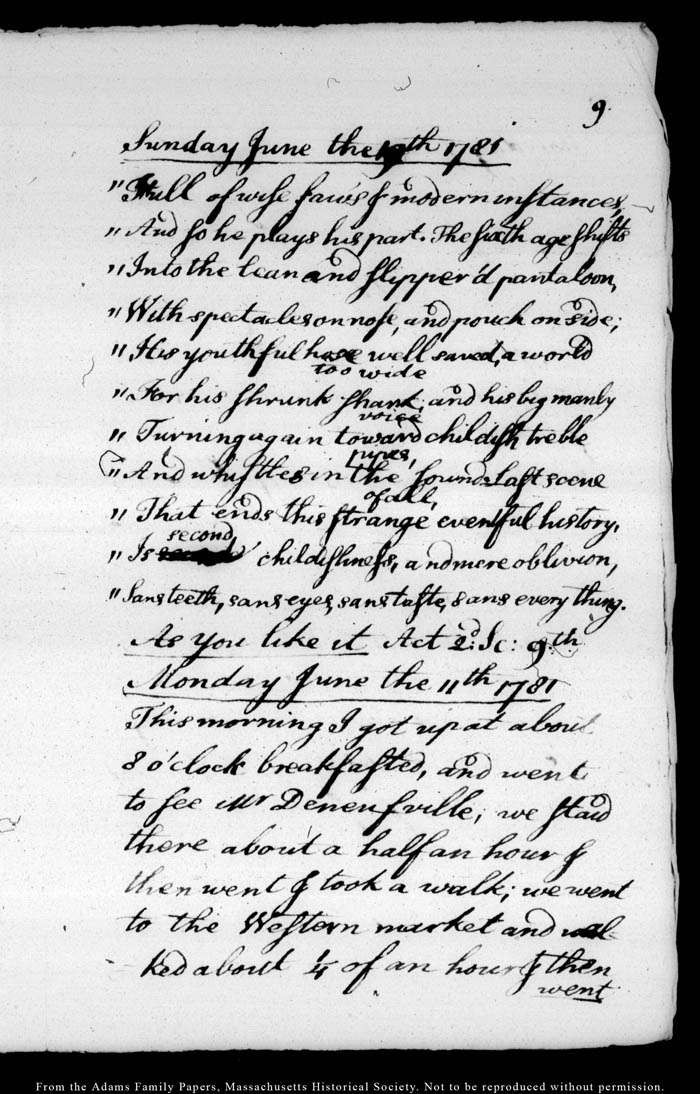 9.
Sunday June the 10th 1781
"Full of wise saws & modern instances,
"And so he plays his part. The sixth age shifts
"Into the lean and slipper'd pantaloon,
"With spectacles on nose, and pouch on side;
"His youthful hose well saved, a world
too wide
"For his shrunk shank; and his big manly
voice
"Turning again toward childish treble
pipes,
"And whistles in the sound: Last scene
of all,
"That ends this strange eventful history,
second,
"Is childishness, and mere oblivion,
"Sans teeth, sans eyes, sans taste, sans every thing.
As you like it Act 2.d Sc: 9.th
Monday June the 11th 1781
This morning I got up at about
8 o'clock breakfasted, and went
to see Mr Deneufville; we staid
there about a half an hour &
then went & took a walk; we went
to the Western market and wal-
ked about 1/4 of an hour & then
went
From the Adams Family Papers, Massachusetts Historical Society. Not to be reproduced without permission.